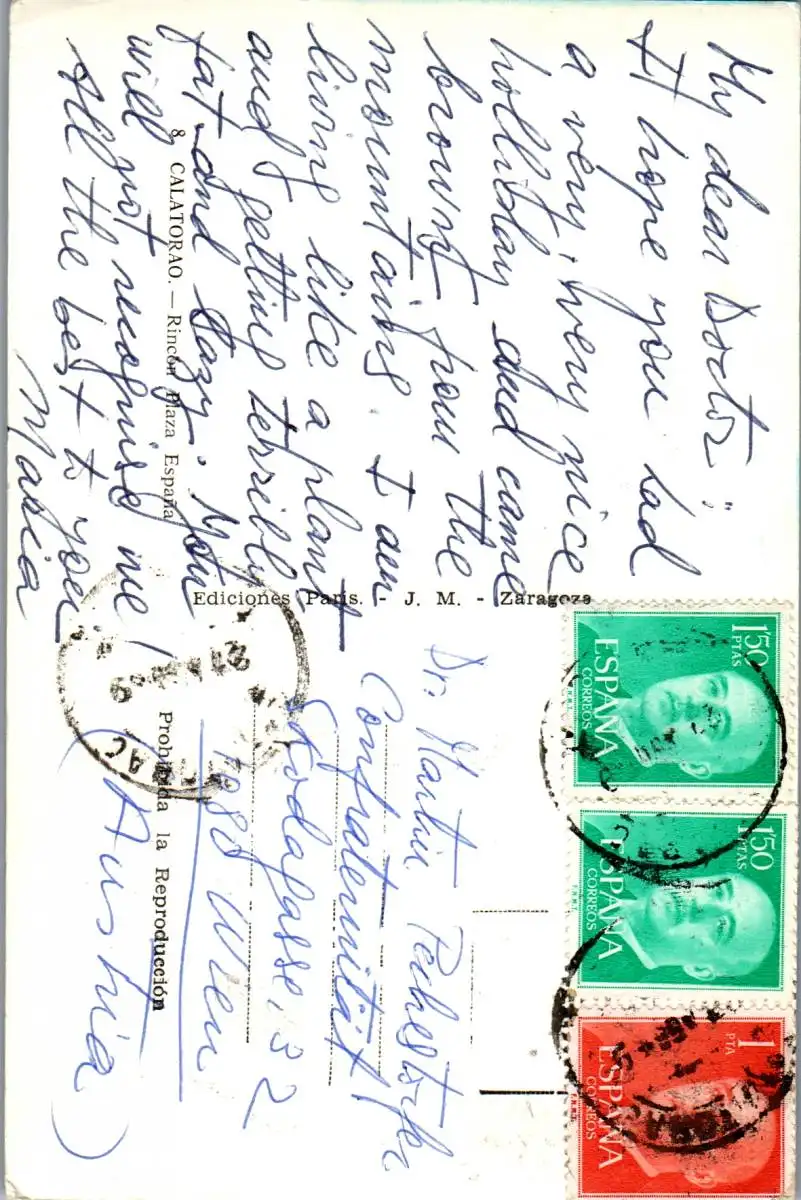 My dear Doctor,
I hope you had
a very, very nice
holliday and came
brownt from the
mountains. I am
living like a plant
and getting terribly
fat and lazy. You
will not recognise me!
All the best to you
Maria
8. CALATORAO. — Rincón Plaza España
Ediciones París. - J. M. - Zaragoza
Prohibida la Reproducción
Dr. Martin
Confraternität
Skodagasse, 32
Wien
(Austria)
1'50
PTAS
ESPAÑA
CORREOS
F.N.M.T.
1'50
PTAS
ESPAÑA
CORREOS
F.N.M.T.
1
PTA
ESPAÑA
CORREOS
F.N.M.T.